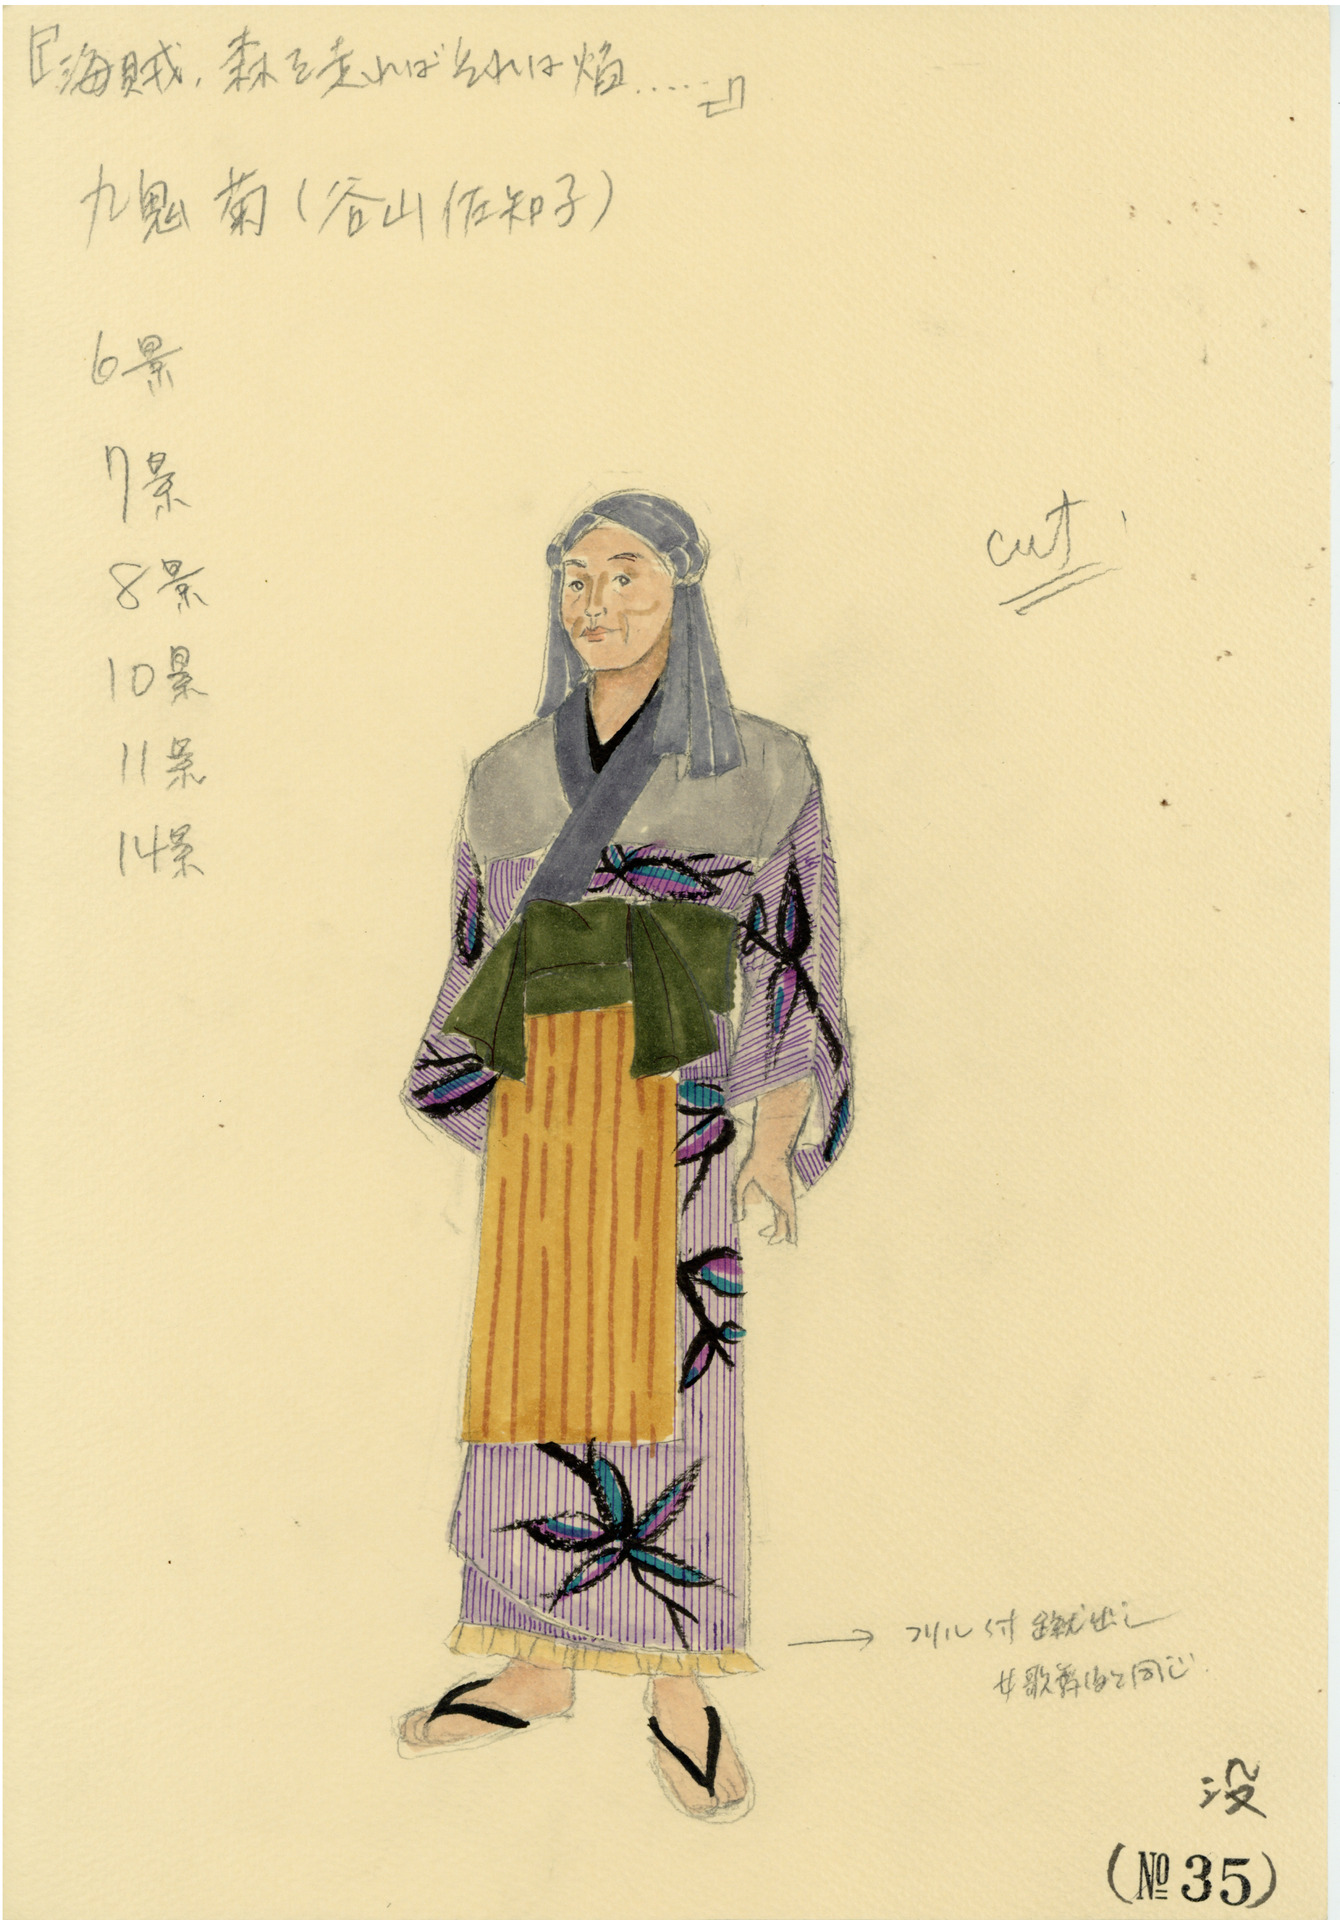 『海賊、森を走ればそれは焔……』
九鬼 菊(谷山 佐知子)
6景
7景
8景
10景
11景
14景
cut
→ フリル付 蹴出し
女歌舞伎と同じ
没
(№35)